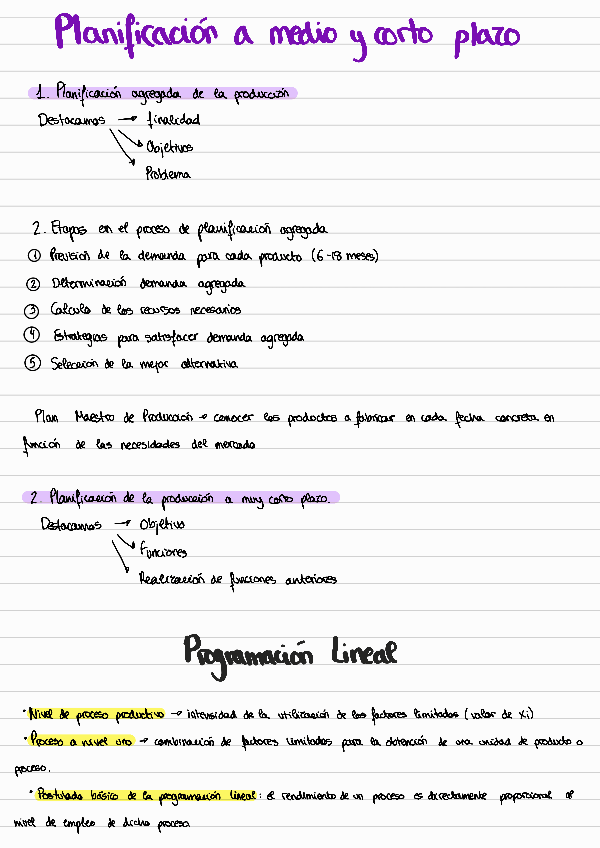 Planificación a medio y corto plazo
1. Planificación agregada de la producción
Destacamos → finalidad
Objetivos
Problema
2. Etapas en el proceso de planificación agregada
① Previsión de la demanda para cada producto (6-18 meses)
② Determinación demanda agregada
③ Calculo de los recursos necesarios
④ Estrategias para satisfacer demanda agregada
⑤ Selección de la mejor alternativa
Plan Maestro de Producción → conocer los productos a fabricar en cada fecha concreta en
función de las necesidades del mercado
2. Planificación de la producción a muy corto plazo.
Destacamos → Objetivo
Funciones
Realización de funciones anteriores
Programación Lineal
· Nivel de proceso productivo → intensidad de la utilización de los factores limitados (valor de Xi)
· Proceso a nivel uno → combinación de factores limitados para la obtención de una unidad de producto o
proceso.
· Postulado básico de la programación lineal: el rendimiento de un proceso es directamente proporcional al
nivel de empleo de dicho proceso